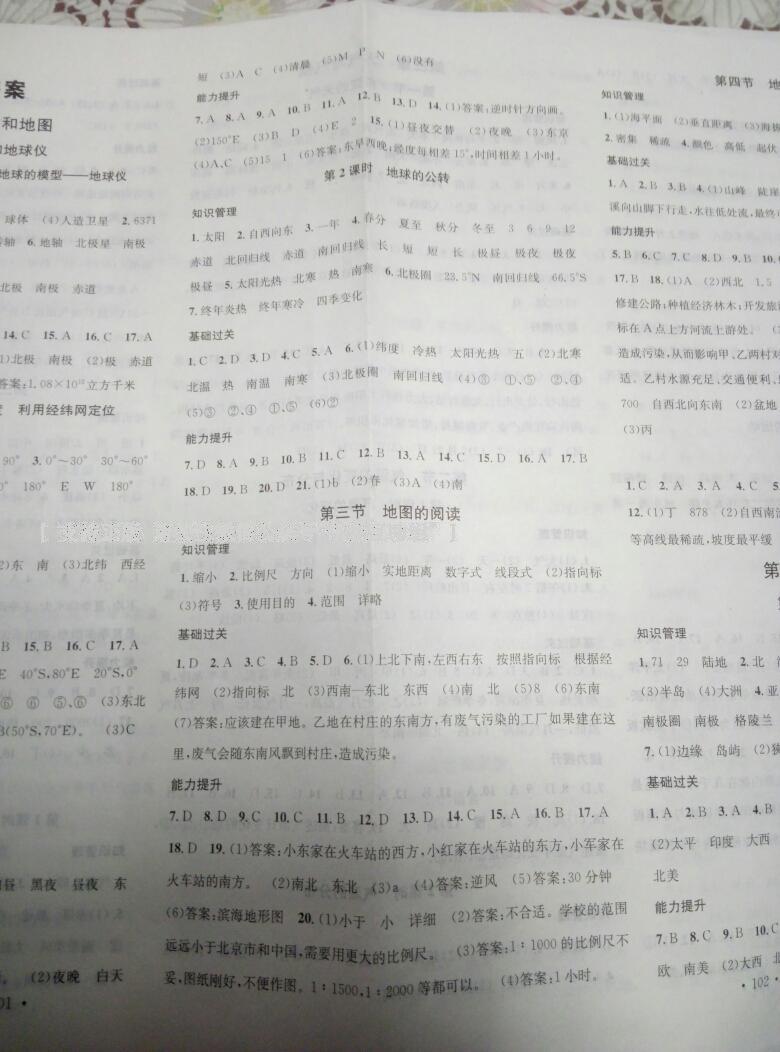 答案
和地图
和地球仪
地球的模型——地球仪
球体 (4)人造卫星 2.6371
转轴 6.地轴 北极星 南极
北极 南极 赤道
14.C 15.A 16.C 17.A
1)北极 南极 (2)极 赤道
答案:1.08×10¹²立方千米
度 利用经纬网定位
90° 3.0°~30° 30°~60°
0° 180° E W 180°
2)东 南 (3)北纬 西经
B 15.B 16.C 17.A
E 40°S,80°E 20°S,0°
⑥ ⑥ ⑤、⑥ (3)东北
B(50°S,70°E)。 (3)C
昼 黑夜 昼夜 东
(2)夜晚 白天
01 ·
短 (3)A C (4)清晨 (5)M P N (6)没有
能力提升
7.A 8.A 9.A 10.B 11.A 12.B 13.D 14.(1)答案:逆时针方向画。
(2)150°E (3)B D (4)E 2 15.(1)昼夜交替 (2)夜晚 (3)东京
(4)A、C (5)15 1 (6)答案:东早西晚;经度每相差15°,时间相差1小时。
第2课时 地球的公转
知识管理
1.太阳 2.自西向东 3.一年 4.春分 夏至 秋分 冬至 3 6 9 12
赤道 北回归线 赤道 南回归线 长 短 短 长 极昼 极夜 极夜
极昼 5.太阳光热 北寒 热 南寒 6.北极圈 23.5°N 南回归线 66.5°S
7.终年炎热 终年寒冷 四季变化
基础过关
1.C 2.D 3.D 4.C 5.A 6.(1)纬度 冷热 太阳光热 五 (2)北寒
北温 热 南温 南寒 (3)北极圈 南回归线 (4)③ ①、⑤ ②、④
(5)③ ②、④ ①、⑤ (6)②
能力提升
7.D 8.A 9.B 10.B 11.C 12.B 13.A 14.C 15.D 16.A 17.B
18.D 19.B 20.D 21.(1)b (2)春 (3)A (4)南
第三节 地图的阅读
知识管理
1.缩小 2.比例尺 方向 (1)缩小 实地距离 数字式 线段式 (2)指向标
(3)符号 3.使用目的 4.范围 详略
基础过关
1.D 2.A 3.C 4.B 5.D 6.(1)上北下南,左西右东 按照指向标 根据经
纬网 (2)指向标 北 (3)西南—东北 东西 (4)南 北 (5)8 (6)东南
(7)答案:应该建在甲地。乙地在村庄的东南方,有废气污染的工厂如果建在这
里,废气会随东南风飘到村庄,造成污染。
能力提升
7.D 8.D 9.C 10.C 11.B 12.D 13.D 14.C 15.A 16.B 17.A
18.D 19.(1)答案:小东家在火车站的西方,小红家在火车站的东方,小军家在
火车站的南方。 (2)南北 东北 (3)a (4)答案:逆风 (5)答案:30分钟
(6)答案:滨海地形图 20.(1)小于 小 详细 (2)答案:不合适。学校的范围
远远小于北京市和中国,需要用更大的比例尺。 (3)答案:1∶1000的比例尺不
妥,图纸刚好,不便作图。1∶1500,1∶2000等都可以。 (4)答案:1小时。
第四节 地
知识管理
1.(1)海平面 (2)垂直距离 (3)海拔
2.密集 稀疏 4.颜色 高低 起伏
基础过关
1.A 2.B 3.B 4.(1)山峰 陡崖
溪向山脚下行走,水往低处流,最终
能力提升
5.B 6.C 7.C 8.D 9.B 10.
17.B 18.(1)A (2)西北 1.5
修建公路;种植经济林木;开发旅
标在A点上方河流上游处。
造成污染,从而影响甲、乙两村对
适。乙村水源充足,交通便利、
700 自西北向东南 (2)盆地
(3)丙
1.C 2.A 3.A 4.C 5.
12.(1)丁 878 (2)自西南
等高线最稀疏,坡度最平缓
第
知识管理
1.71 29 陆地 2.北
(3)半岛 (4)大洲 4.亚
南极圈 南极 格陵兰
7.(1)边缘 岛屿 (2)狭
基础过关
1.A 2.B 3.A 4.B
(2)太平 印度 大西
北美
能力提升
7.B 8.C 9.B 10.C
欧 南美 (2)大西 北
· 102 ·